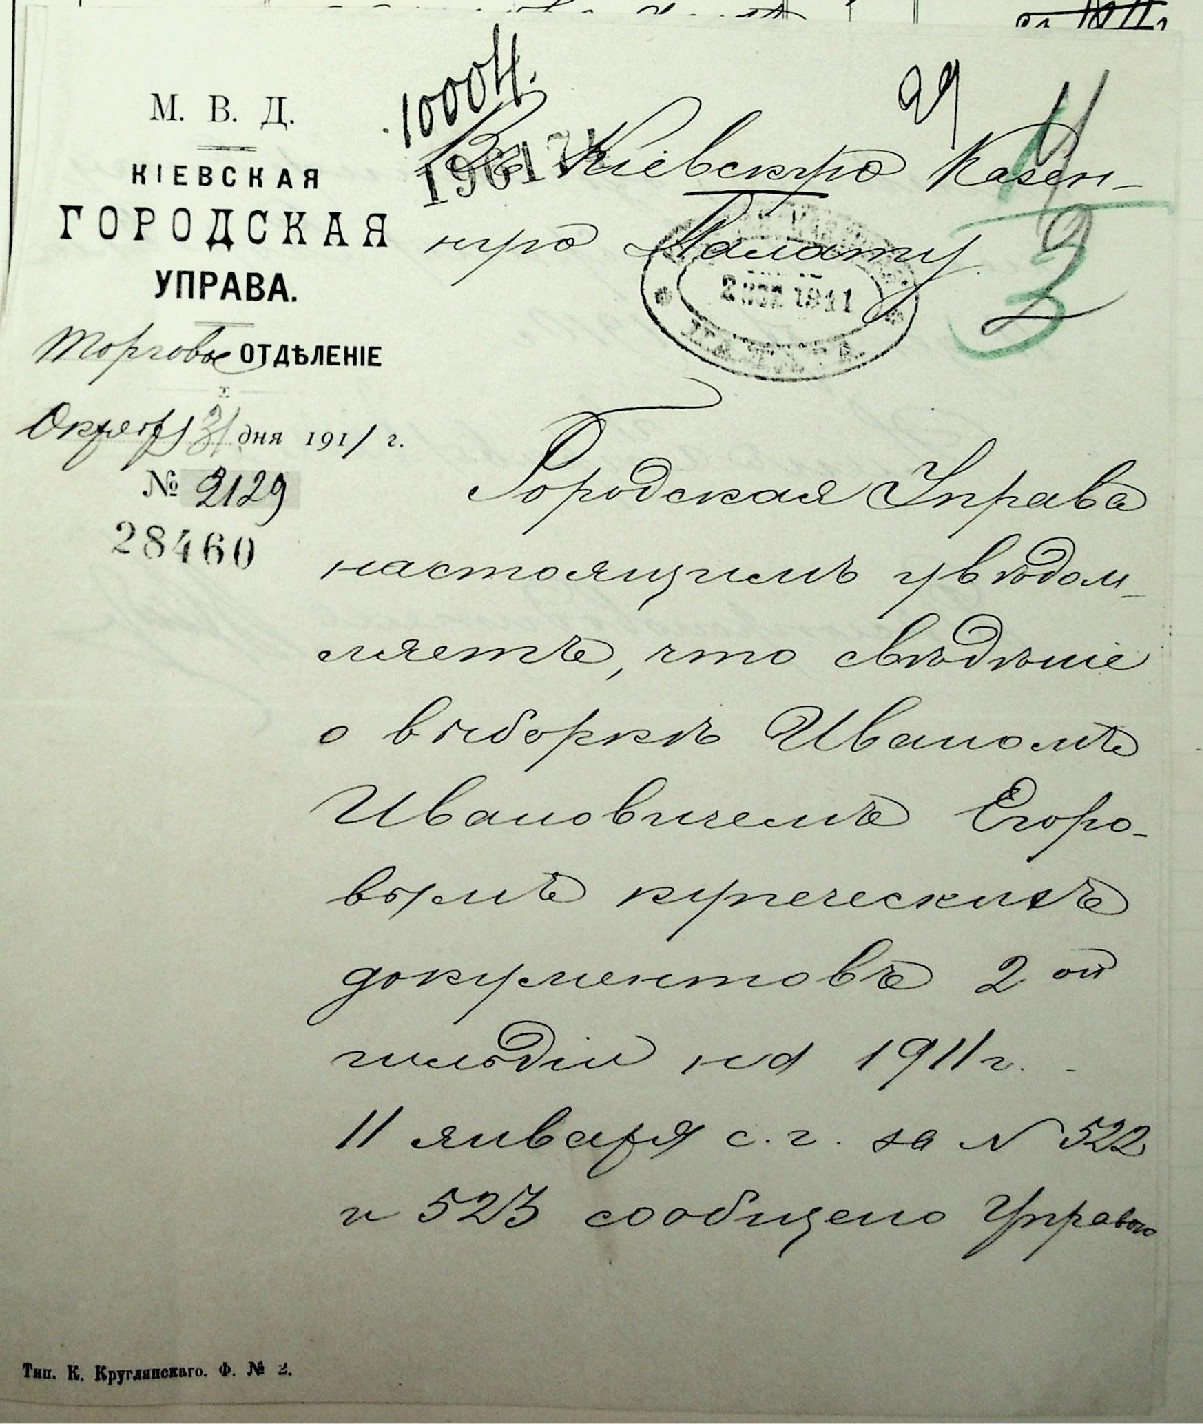 М. В. Д.
КІЕВСКАЯ
ГОРОДСКАЯ
УПРАВА.
Торговое ОТДѢЛЕНІЕ
Октября 31 дня 1911 г.
№ 2129
28460
10004.
29
Въ Кіевскую Казен-
ную Палату
2 НОЯ 1911
Городская Управа
настоящимъ увѣдом-
ляетъ, что свѣдѣніе
о выборкѣ Иваномъ
Ивановичемъ Егоро-
вымъ купеческихъ
документовъ 2 ой
гильдіи на 1911 г.
11 января с. г. за N 522
и 523 сообщено Управою
Тип. К. Круглянскаго. Ф. № 2.